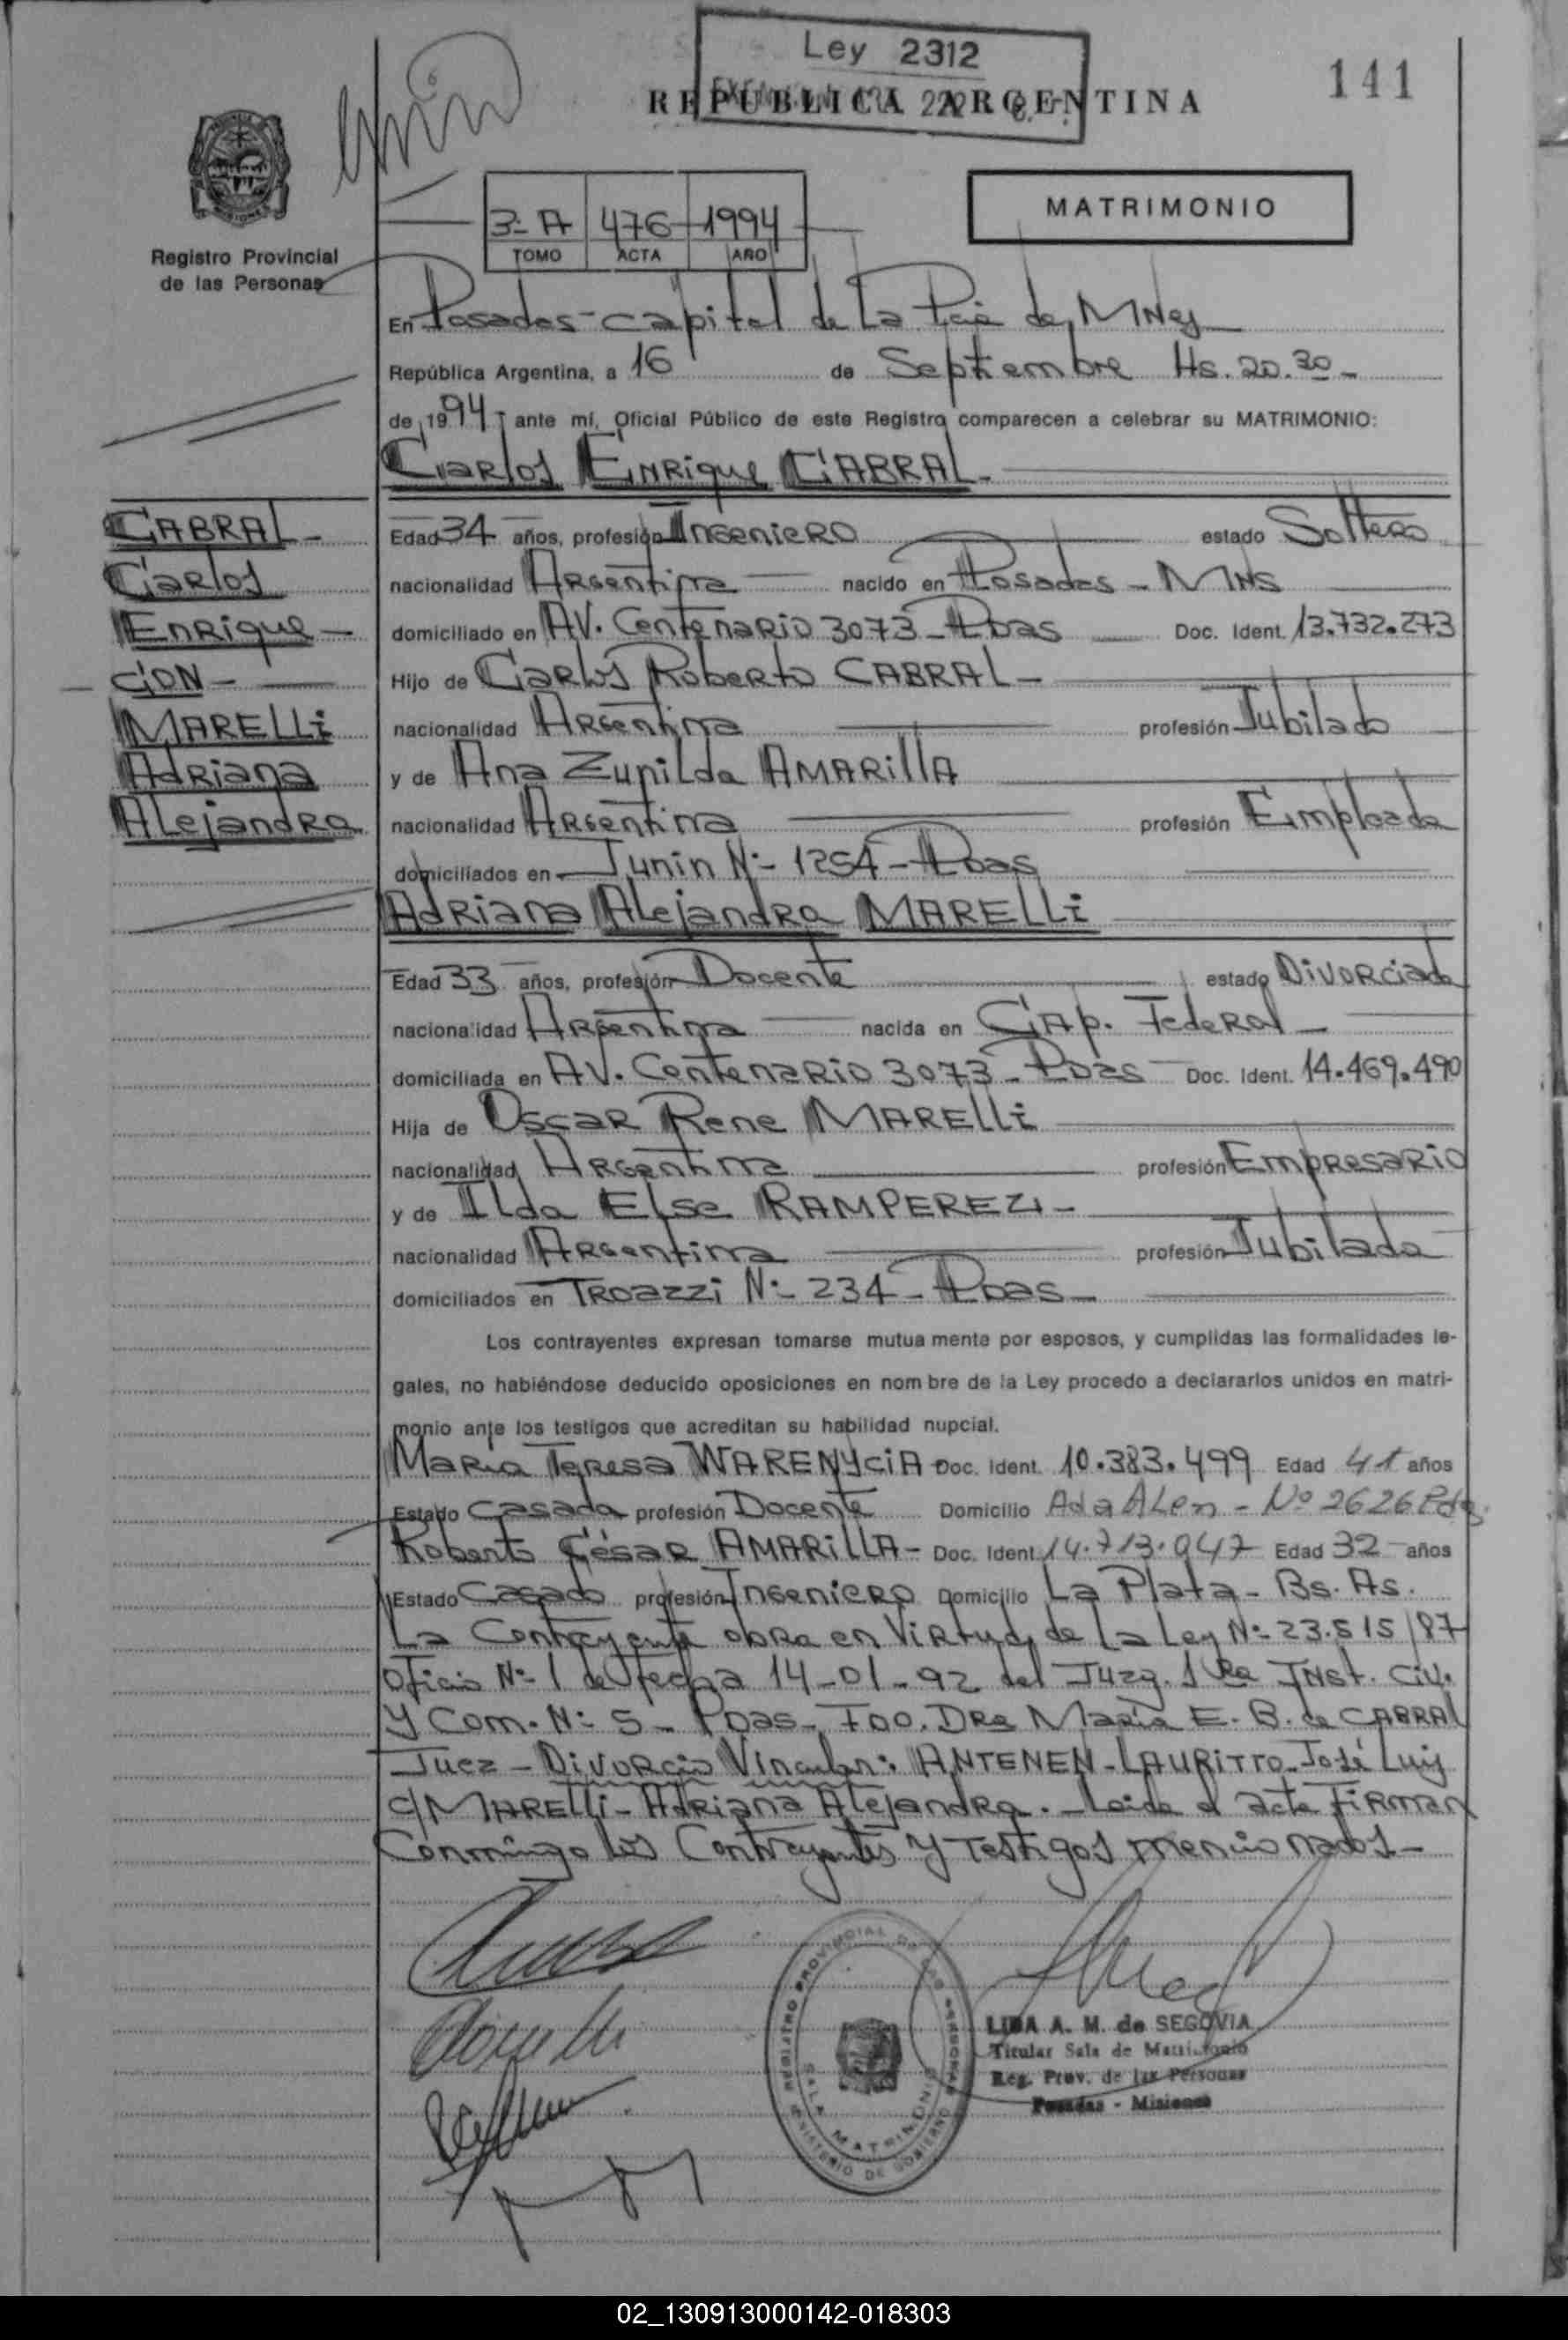 Ley 2312
141
REPUBLICA ARGENTINA
MATRIMONIO
3-A 476 1994
TOMO ACTA AÑO
Registro Provincial
de las Personas
En Posadas-capital de La Pcia de Mnes
República Argentina, a 16 de Septiembre Hs. 20.30-
de 1994 ante mí, Oficial Público de este Registro comparecen a celebrar su MATRIMONIO:
Carlos Enrique CABRAL-
CABRAL-
Carlos
Enrique-
CON-
MARELLi
Adriana
Alejandra
Edad 34 años, profesión Ingeniero estado Soltero
nacionalidad Argentina nacido en Posadas - MNS
domiciliado en AV. Centenario 3073-Pdas Doc. Ident. 13.732.273
Hijo de Carlos Roberto CABRAL-
nacionalidad Argentina profesión Jubilado
y de Ana Zunilda AMARillA
nacionalidad Argentina profesión Empleada
domiciliados en Junin N:- 1254-Pdas
Adriana Alejandra MARELLi
Edad 33 años, profesión Docente estado Divorciada
nacionalidad Argentina nacida en CAp. Federal-
domiciliada en AV. Centenario 3073-Pdas Doc. Ident. 14.469.490
Hija de Oscar Rene MARELLi
nacionalidad Argentina profesión Empresario
y de Ilda Else RAMPEREZI-
nacionalidad Argentina profesión Jubilada
domiciliados en TROazzi N:- 234-Pdas-
Los contrayentes expresan tomarse mutua mente por esposos, y cumplidas las formalidades le-
gales, no habiéndose deducido oposiciones en nom bre de la Ley procedo a declararlos unidos en matri-
monio ante los testigos que acreditan su habilidad nupcial.
Maria Teresa WARENYCiA Doc. Ident. 10.383.499 Edad 41 años
Estado Casada profesión Docente Domicilio Ada ALen - Nº 2626 Pdas
Roberto César AMARiLLA- Doc. Ident. 14.713.047 Edad 32 años
Estado Casado profesión Ingeniero Domicilio La Plata- Bs. As.
La Contrayente obra en Virtud de la Ley N:- 23.515/87
Oficio N:- 1 de fecha 14-01-92 del Juzg. 1 Ra Inst. Civ.
Y Com. N:- 5- Pdas- Fdo. Dra Maria E. B. de CABRAL
Juez - Divorcio Vincular: ANTENEN-LAURiTTO-José Luis
c/MARELLi-Adriana Alejandra.- Leida el acta FiRman
Conmigo los Contrayentes y Testigos mencionados-
REGISTRO PROVINCIAL DE LAS PERSONAS
SALA MATRIMONIO
MINISTERIO DE GOBIERNO
LIDA A. M. de SEGOVIA
Titular Sala de Matrimonio
Reg. Prov. de las Personas
Posadas - Misiones
02_130913000142-018303